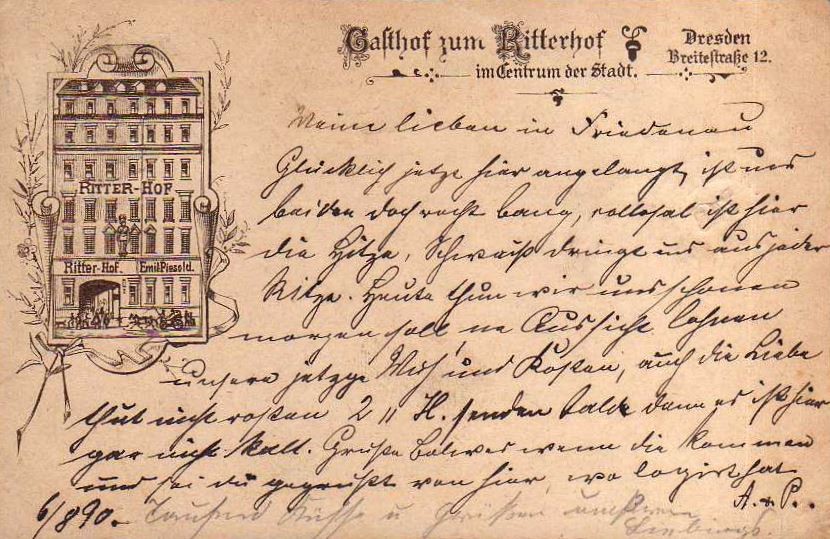 Gasthof zum Ritterhof
im Centrum der Stadt.
Dresden
Breitestraße 12.
RITTER-HOF
Ritter-Hof. Emil Piesold.
Meine lieben in Friedenau
Glücklich jetzt hier angelangt, ist uns
beiden doch recht bang, collosal ist hier
die Hitze, Schweiß dringt uns aus jeder
Ritze. Heute thun wir uns schonen
morgen soll ne Aussicht lohnen
unsere jetzge Müh' und Kosten, auch die Liebe
thut nicht rosten 2 H. senden bald denn es ist hier
gar nicht kalt. Grüße wenn die kommen
und sei du gegrüßt von hier, wo logirt hat
A. & P.
6/8 90. Tausend Küsse u Grüßen